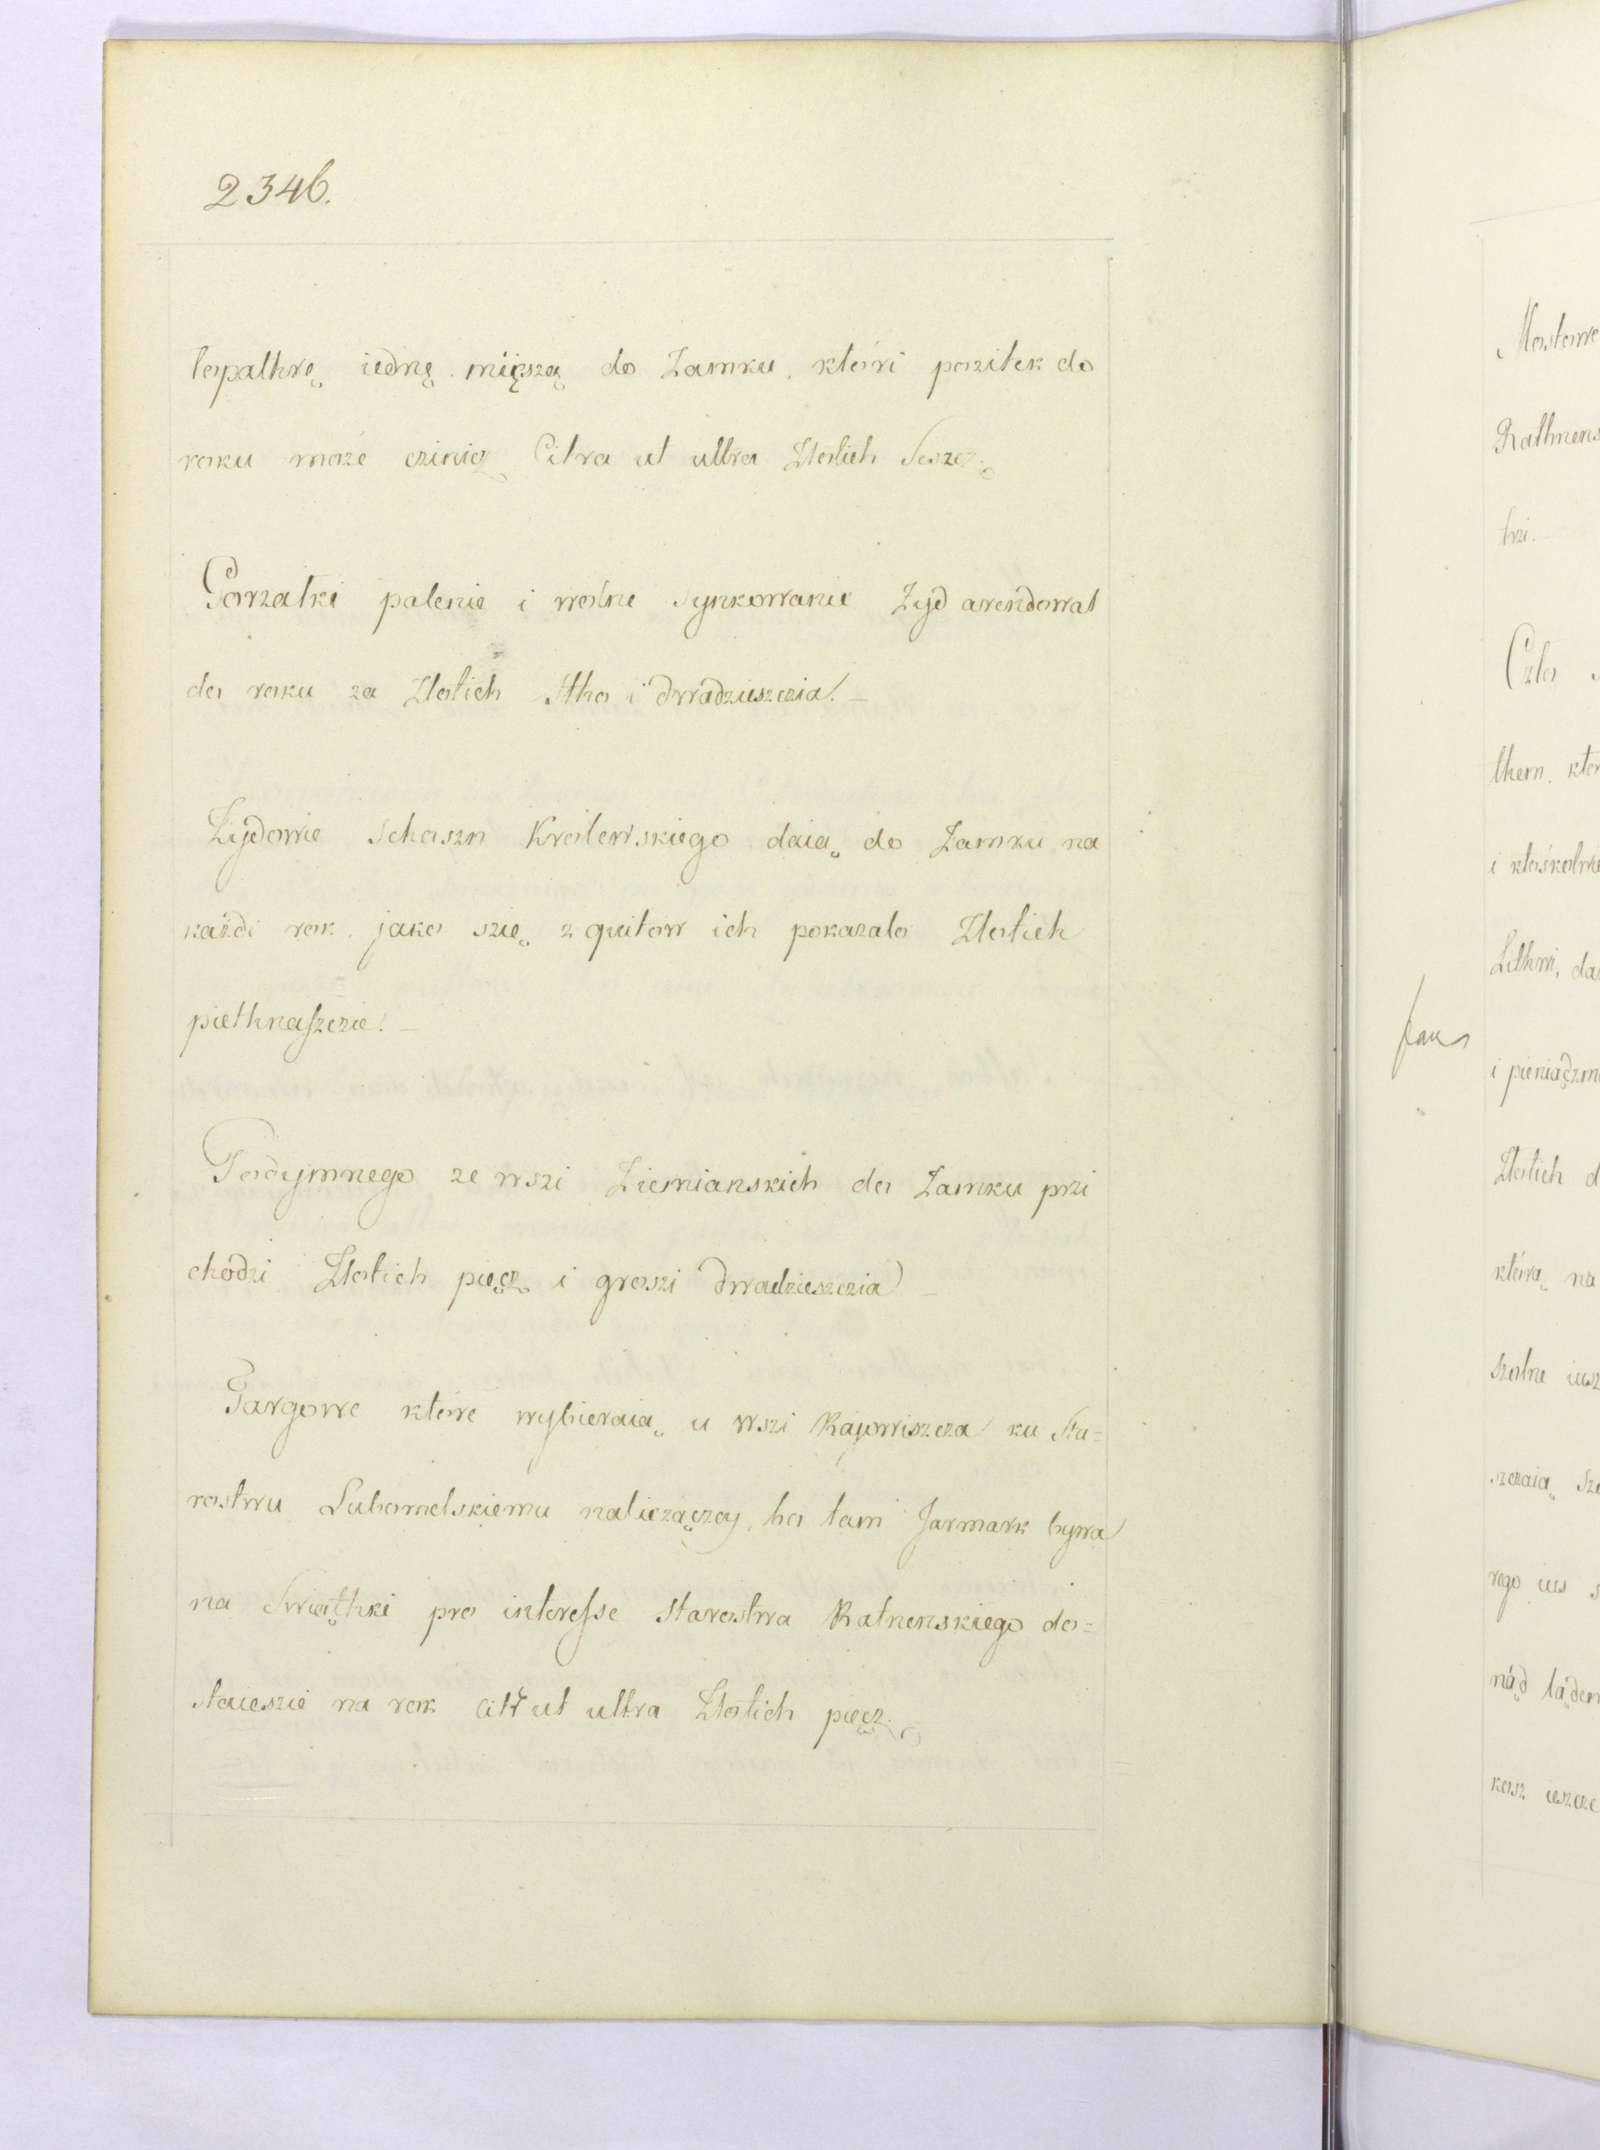 2346.
łopathkę iednę mięszą do Zamku, któri pozitek do
roku może cziniez Citra ut ultra Złotich Szez.
Gorzałki palenie i wolne Szynkowanie Zyd arendował
do roku za Złotich Stho i dwadzieszczia.
Zydowie Krolewskiego daią do Zamku na
każdi rok jako szię z quitow ich pokazało Złotich
piethnaszczie.
Podymnego ze wszi Ziemianskich do Zamku przi
chodzi Złotich pięcz i groszi dwadzieszczia
Targowe które wybieraią u wszi Rajowiszcza ku Sta=
rostwu Lubomelskiemu należączey, bo tam Jarmark bywa
na Swiąthki pro interesse Starostwa Ratnenskiego do=
staieszie na rok citr ut ultra Złotich pięcz.
Mostowe
trzi.
Czło
them, któ
Lithwi, da
i pieniądzmi
Złotich d
którą na
szczaią
rego ius
nád
kosz ieszcze